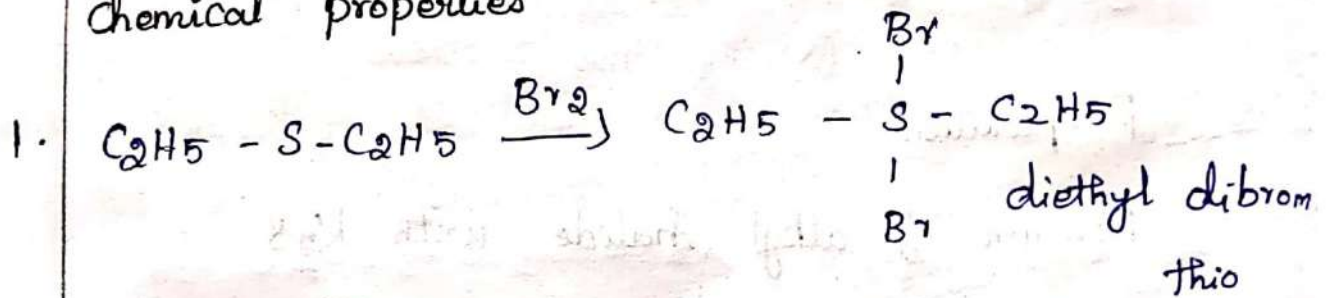 Chemical properties
Br
|
1. C2H5 - S - C2H5 Br2→ C2H5 - S - C2H5
|
Br
diethyl dibrom
thio